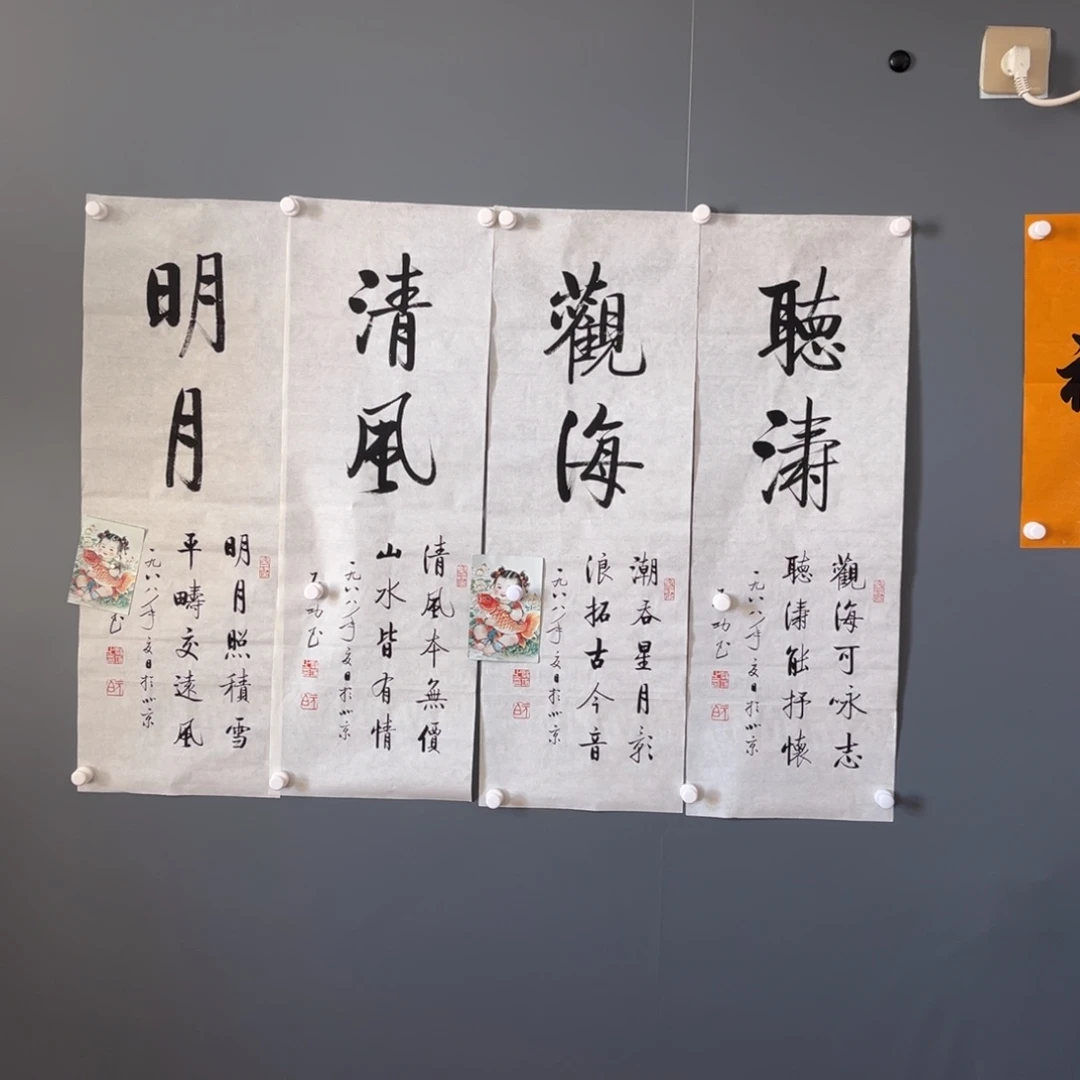 聽濤
觀海可咏志
聽濤能抒懷
一九八八年夏日於北京
功书
觀海
潮吞星月影
浪拓古今音
一九八八年夏日於北京
清風
清風本無價
山水皆有情
一九八八年夏日於北京
功书
明月
明月照積雪
平疇交遠風
一九八八年夏日於北京
书